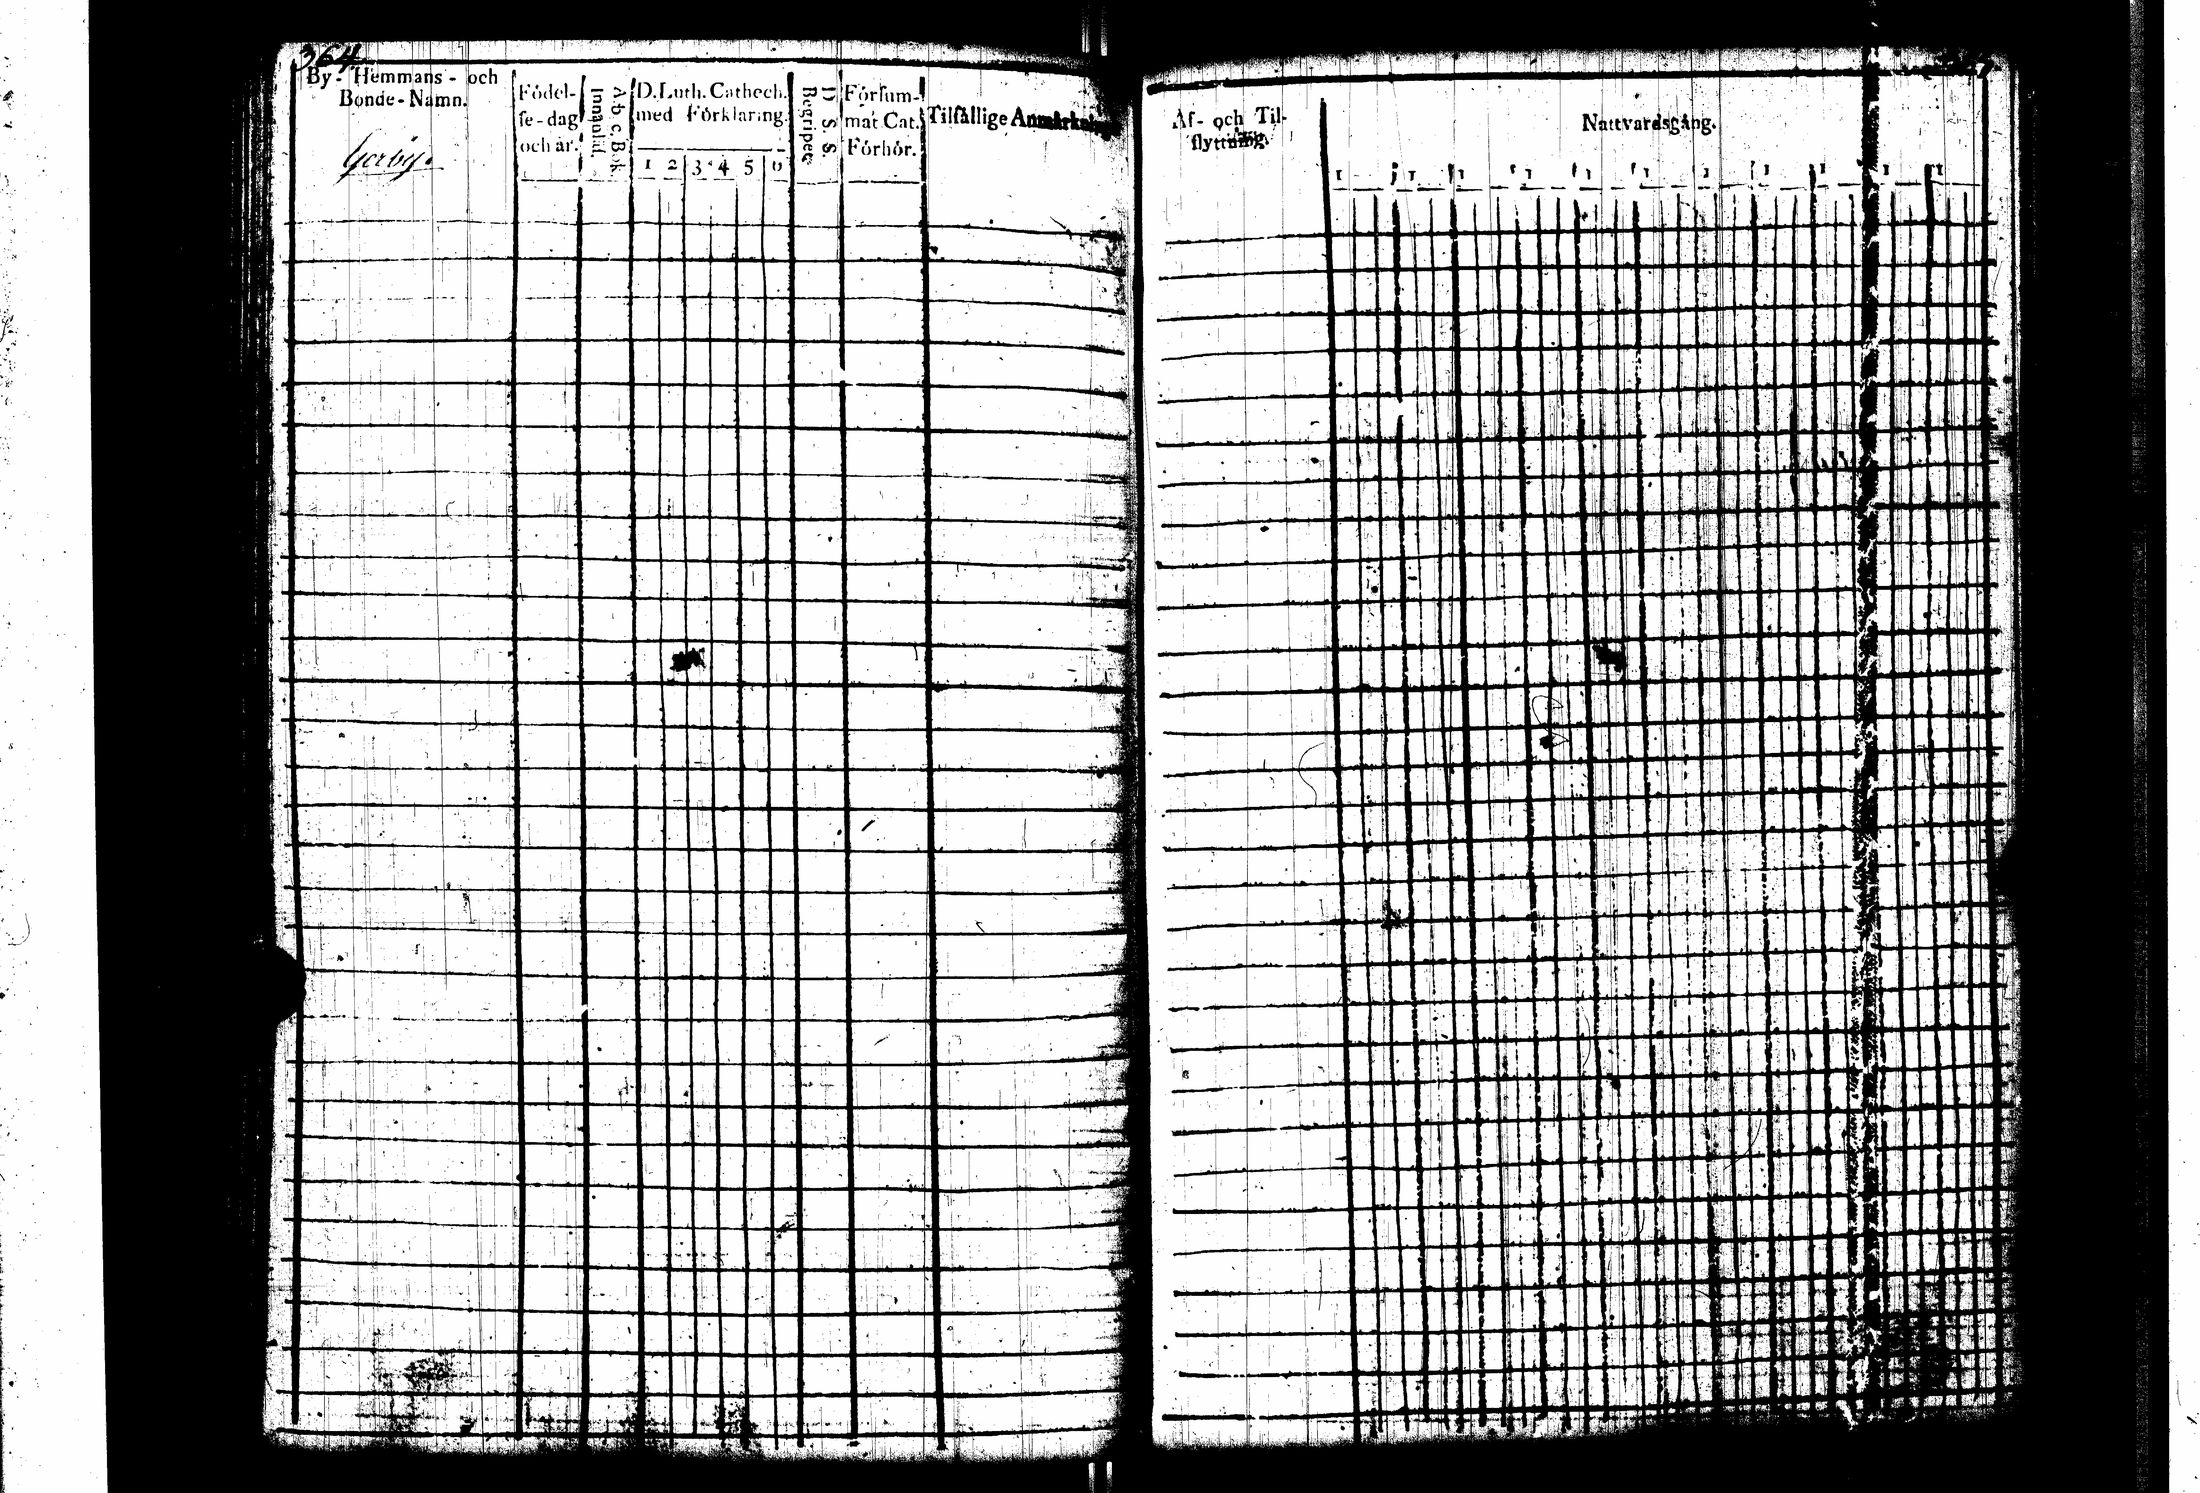 364
By- Hemmans- och
Bonde-Namn.
Gerby.
Födel-
se-dag
och år.
A b c Bok
Innantil.
D. Luth. Cathech.
med Förklaring.
1 2 3 4 5 6
D. S. S.
Begripes.
Försum-
mat Cat.
Förhör.
Tilfällige Anmärkningar
Af- och Til-
flyttning.
Nattvardsgång.